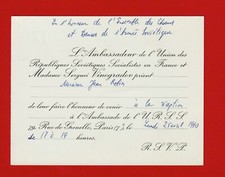 En l'honneur de l'Ensemble des Chants
et Danses de l'Armée Soviétique
L'Ambassadeur de l'Union des
Républiques Soviétiques Socialistes en France et
Madame Serguei Vinogradov prient
Monsieur Jean
de leur faire l'honneur de venir à la réception
à l'Ambassade de l'U.R.S.S.
79, Rue de Grenelle, Paris 7e le Lundi
de 17 à 19 heures.
R.S.V.P.